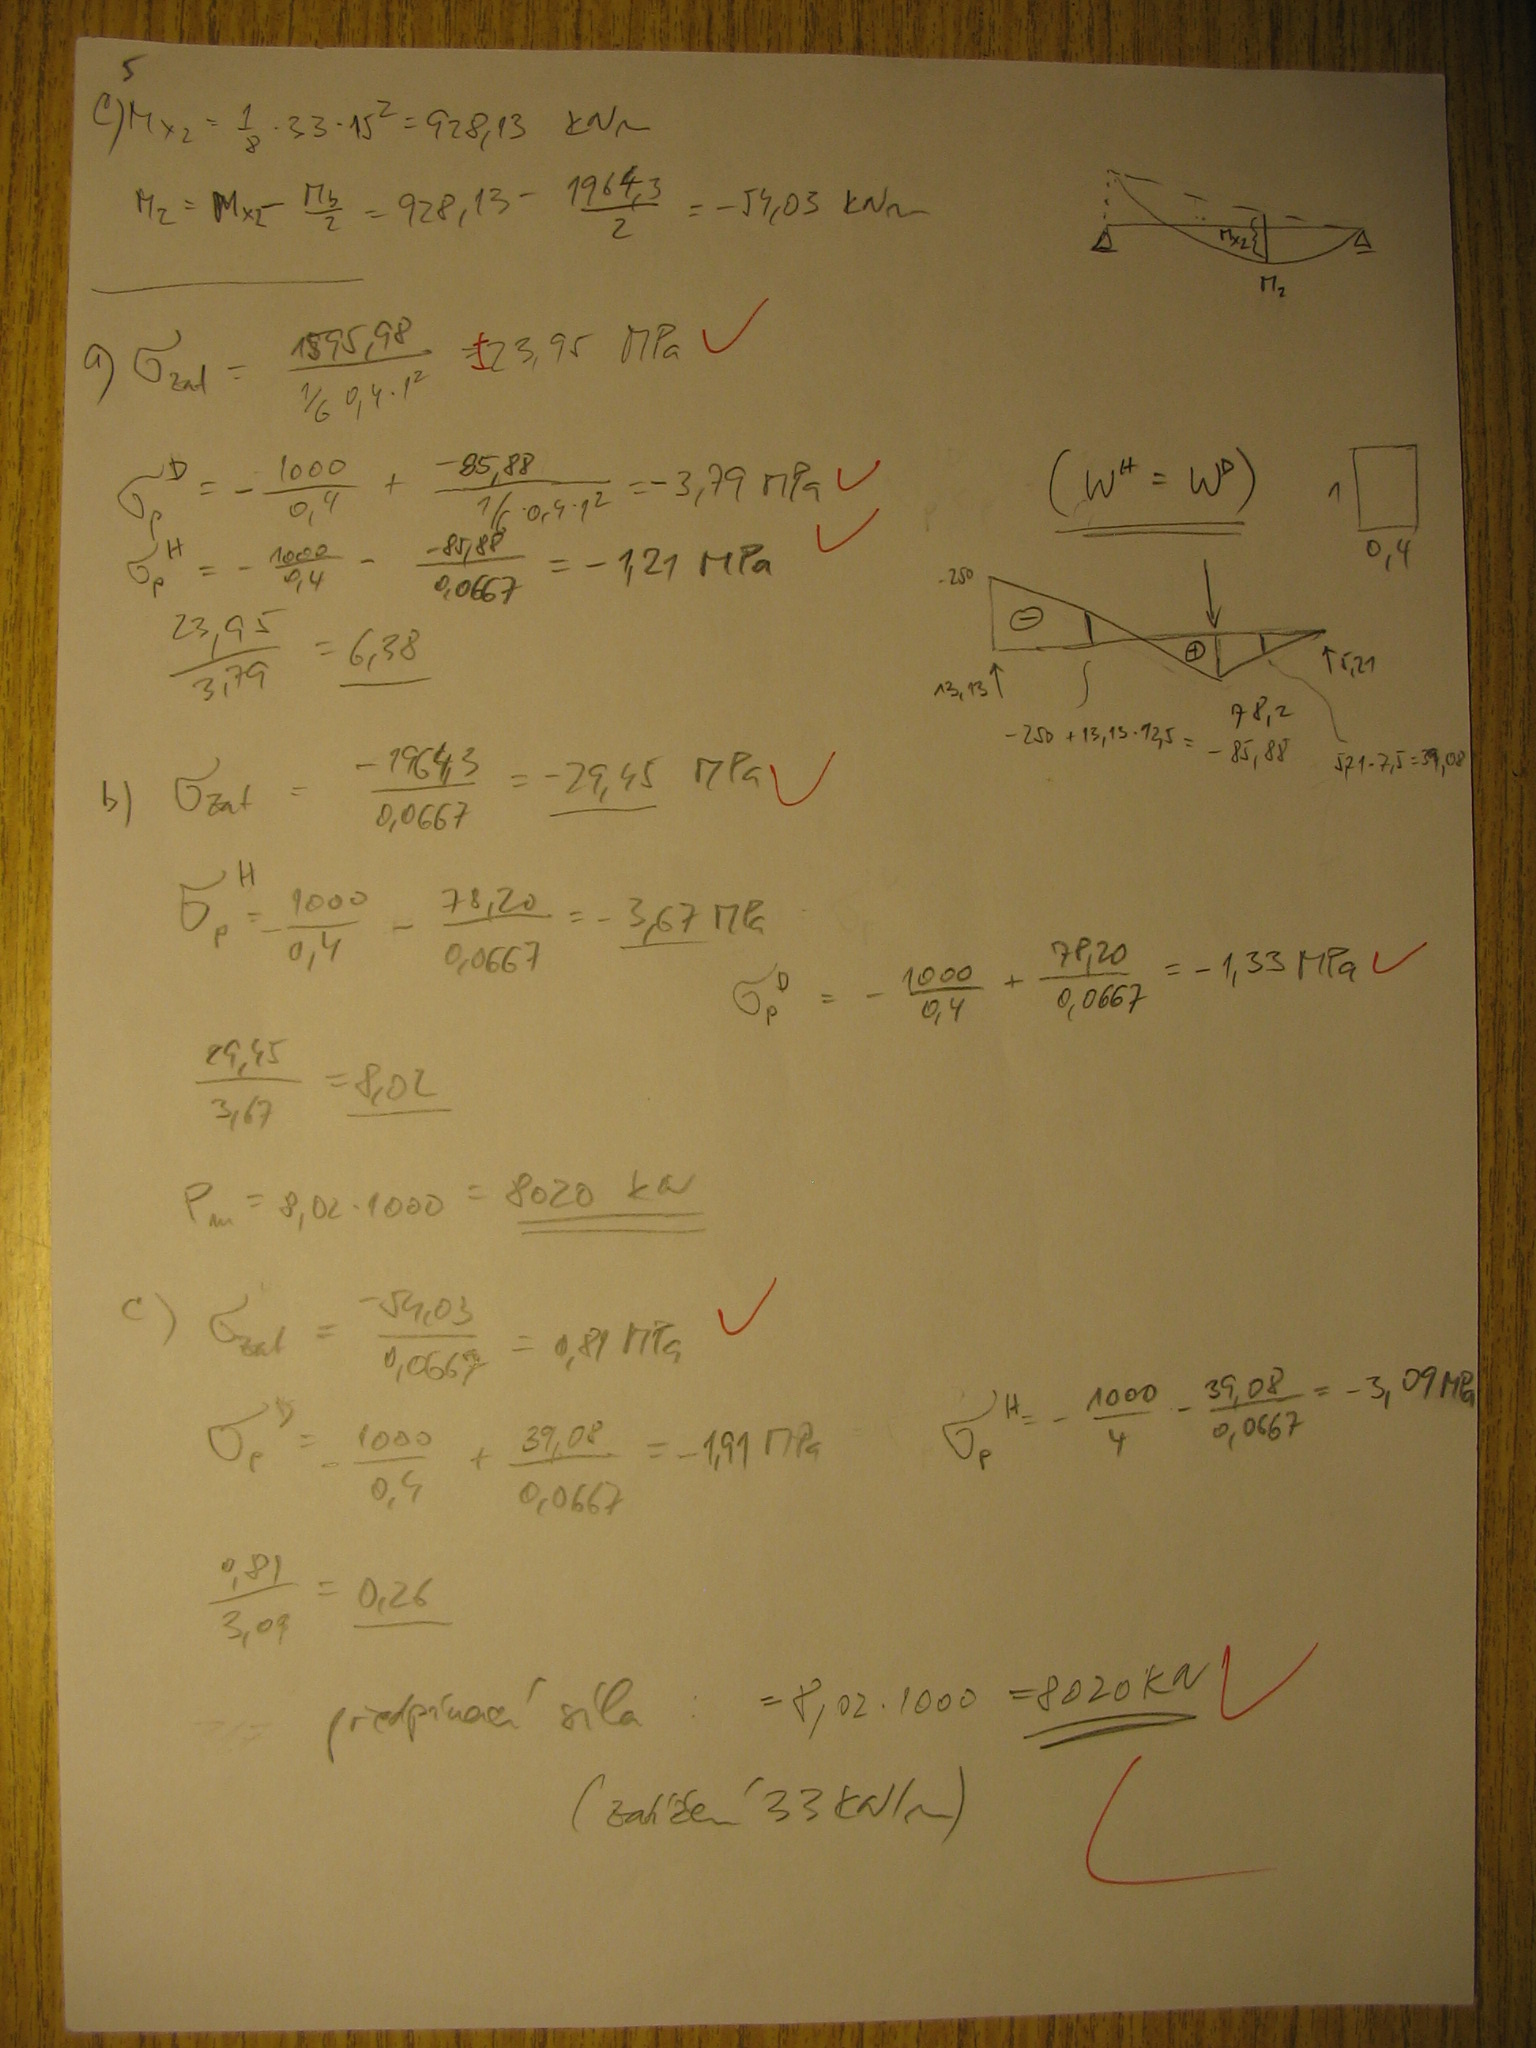 5
c) Mx2 = 1/8 · 33 · 15² = 928,13 kNm
M2 = Mx2 - Mb/2 = 928,13 - 1964,3/2 = -54,03 kNm
Mx2
M2
a) σzat = 1595,98 / (1/6 0,4·1²) = ±23,95 MPa ✓
σp^D = - 1000/0,4 + -85,88 / (1/6·0,4·1²) = -3,79 MPa ✓
(W^H = W^D)
1
0,4
σp^H = - 1000/0,4 - -85,88/0,0667 = -1,21 MPa ✓
23,95/3,79 = 6,38
-250
⊖
⊕
13,13 ↑
↑ 5,21
78,2
-250 + 13,13·12,5 = -85,88
5,21·7,5 = 39,08
b) σzat = -1964,3/0,0667 = -29,45 MPa ✓
σp^H = - 1000/0,4 - 78,20/0,0667 = -3,67 MPa
σp^D = - 1000/0,4 + 78,20/0,0667 = -1,33 MPa ✓
29,45/3,67 = 8,02
Pm = 8,02·1000 = 8020 kN
c) σzat = -54,03/0,0667 = 0,81 MPa ✓
σp^D = - 1000/0,4 + 39,08/0,0667 = -1,91 MPa
σp^H = - 1000/4 - 39,08/0,0667 = -3,09 MPa
0,81/3,09 = 0,26
předpínací síla : = 8,02·1000 = 8020 kN ✓
(zatížení 33 kN/m)